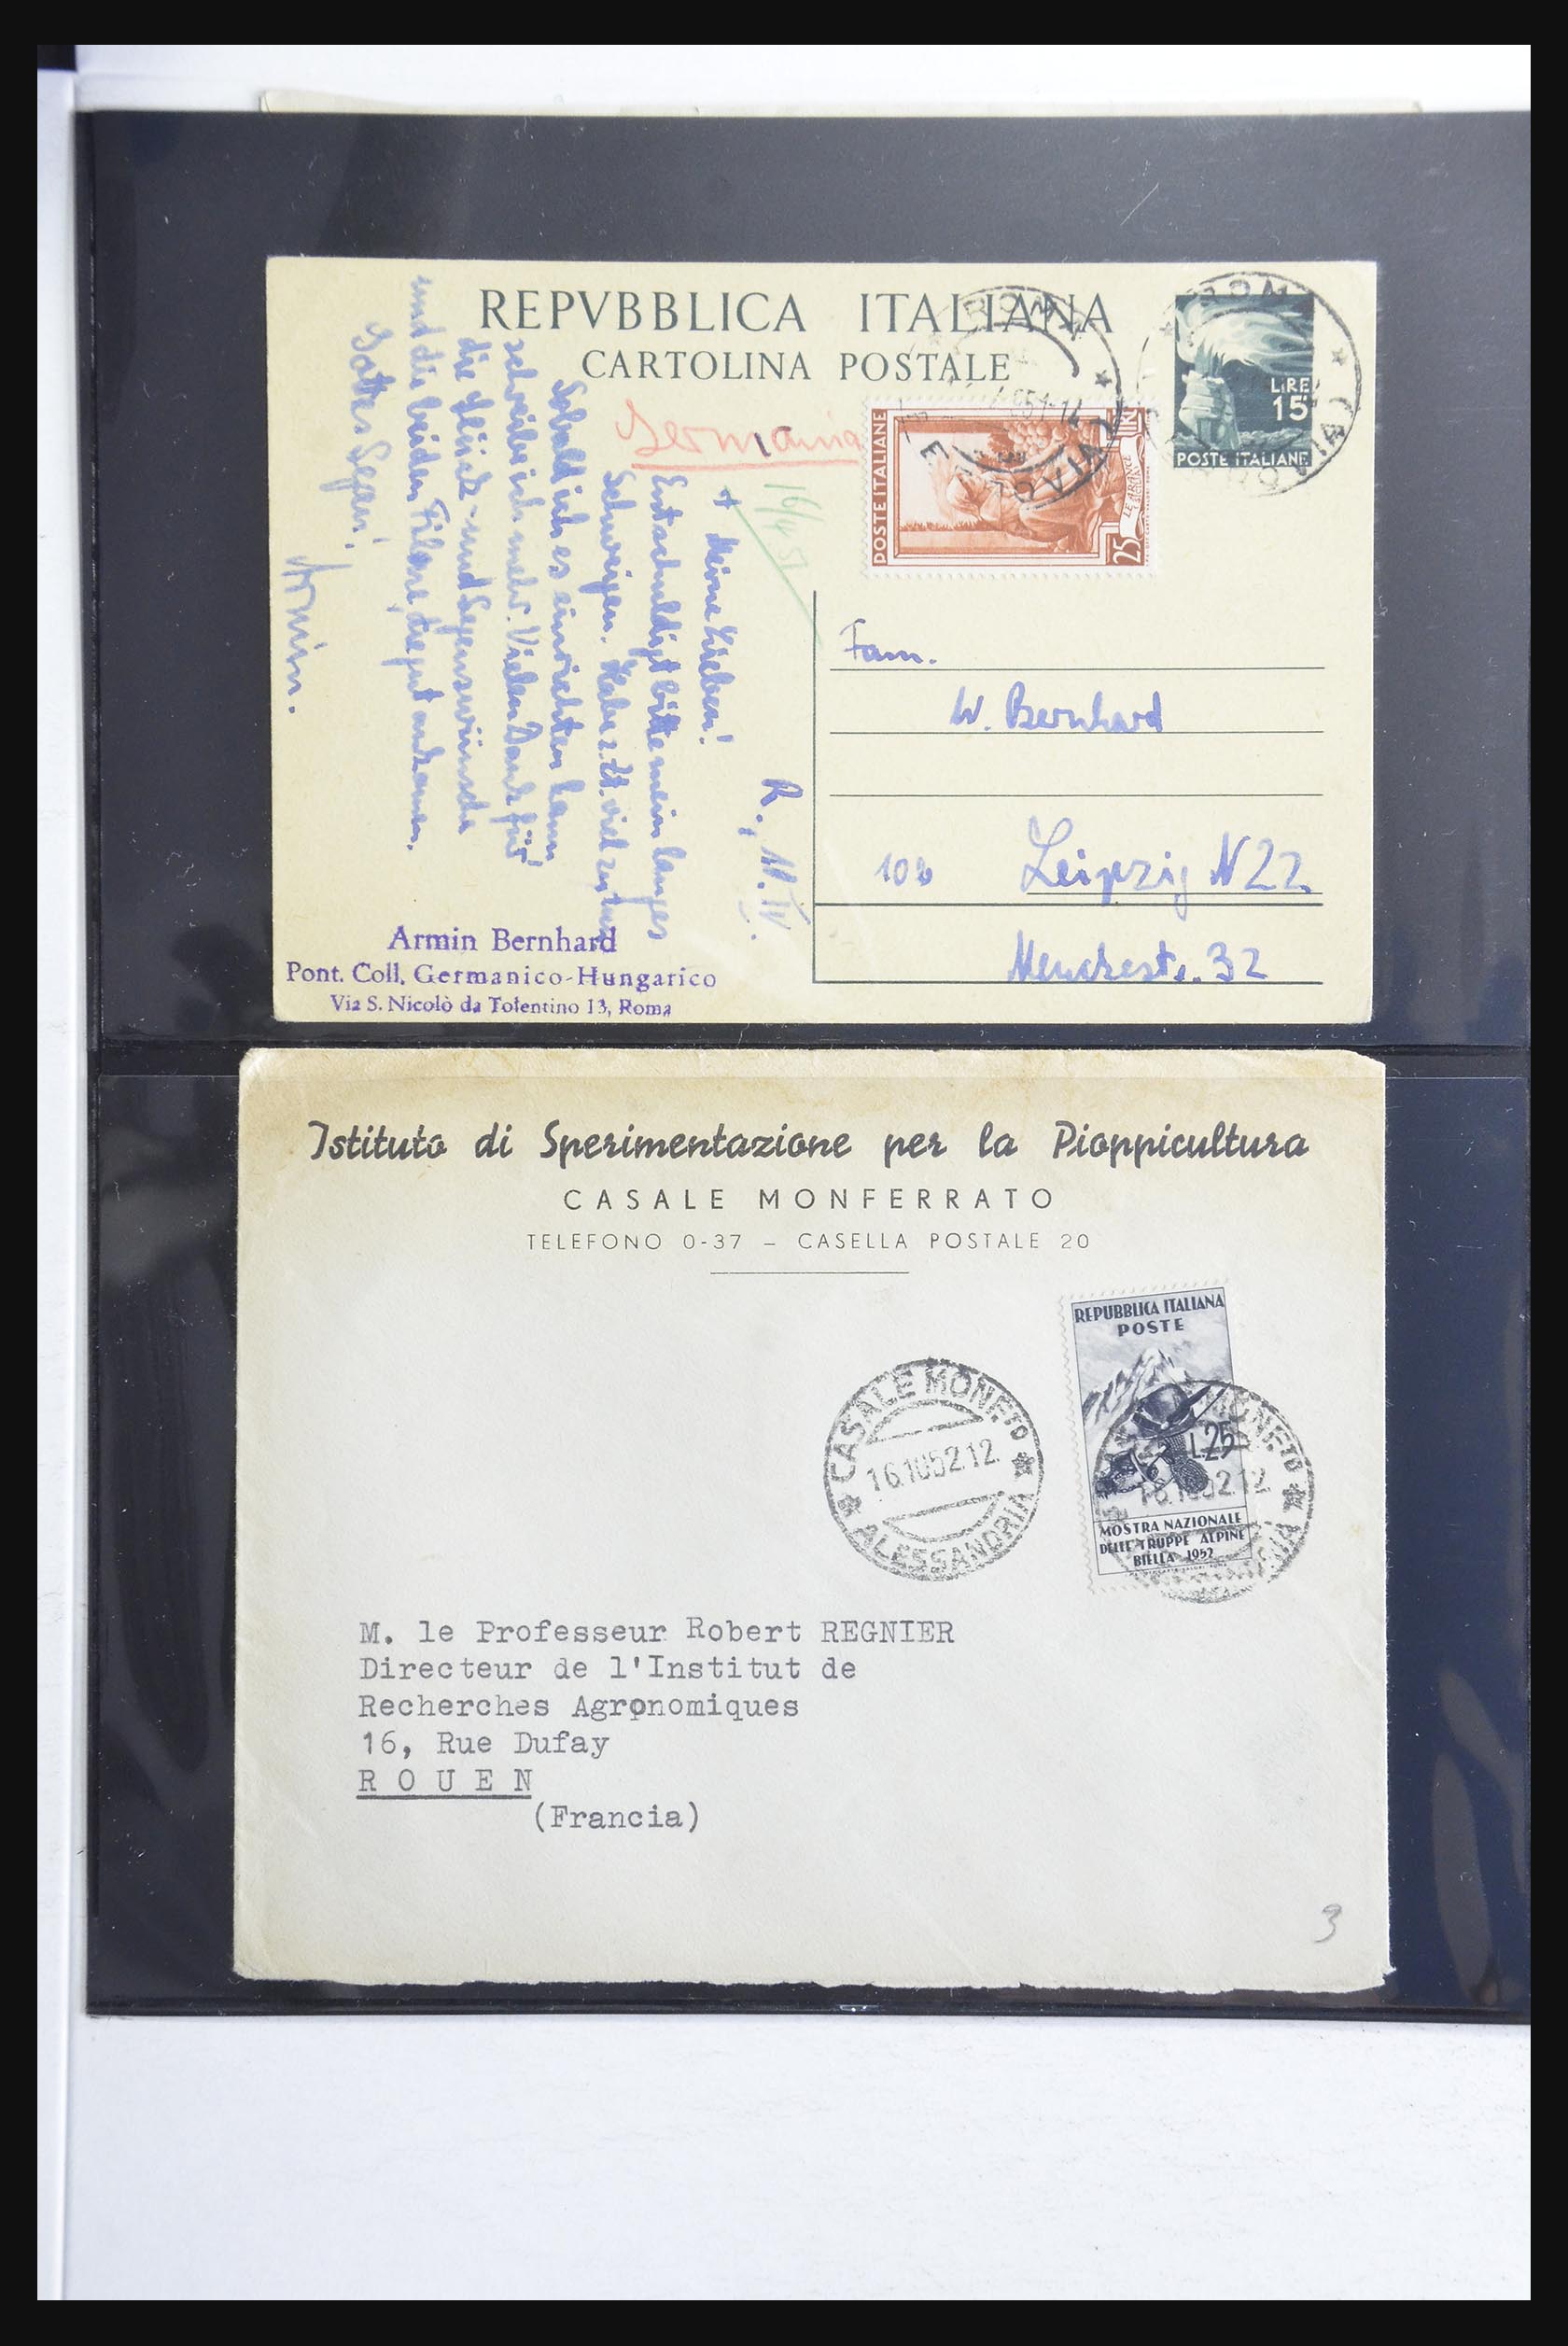 REPVBBLICA ITALIANA
CARTOLINA POSTALE
Germania
LIRE
15
POSTE ITALIANE
ROMA
FERROVIA
51-14
POSTE ITALIANE
25
LE ARANCE
16/4 51
R., 11. IV.
+ Meine Lieben!
Entschuldigt bitte mein langes
Schweigen. Habe z. Zt. viel zu tun
Sobald ich es einrichten kann
schreibe ich mehr. Vielen Dank für
die Glück- und Segenswünsche
und die beiden Filme, die gut ankamen.
Gottes Segen!
Armin.
Fam.
W. Bernhard
10b Leipzig N22
32
Armin Bernhard
Pont. Coll. Germanico-Hungarico
Via S. Nicolò da Tolentino 13, Roma
Istituto di Sperimentazione per la Pioppicultura
CASALE MONFERRATO
TELEFONO 0-37 – CASELLA POSTALE 20
REPUBBLICA ITALIANA
POSTE
L.25
MOSTRA NAZIONALE
DELLE TRUPPE ALPINE
BIELLA 1952
CASALE MONF.TO
16.10.52.12
ALESSANDRIA
MONF.TO
16.10.52.12
M. le Professeur Robert REGNIER
Directeur de l'Institut de
Recherches Agronomiques
16, Rue Dufay
ROUEN
(Francia)
3